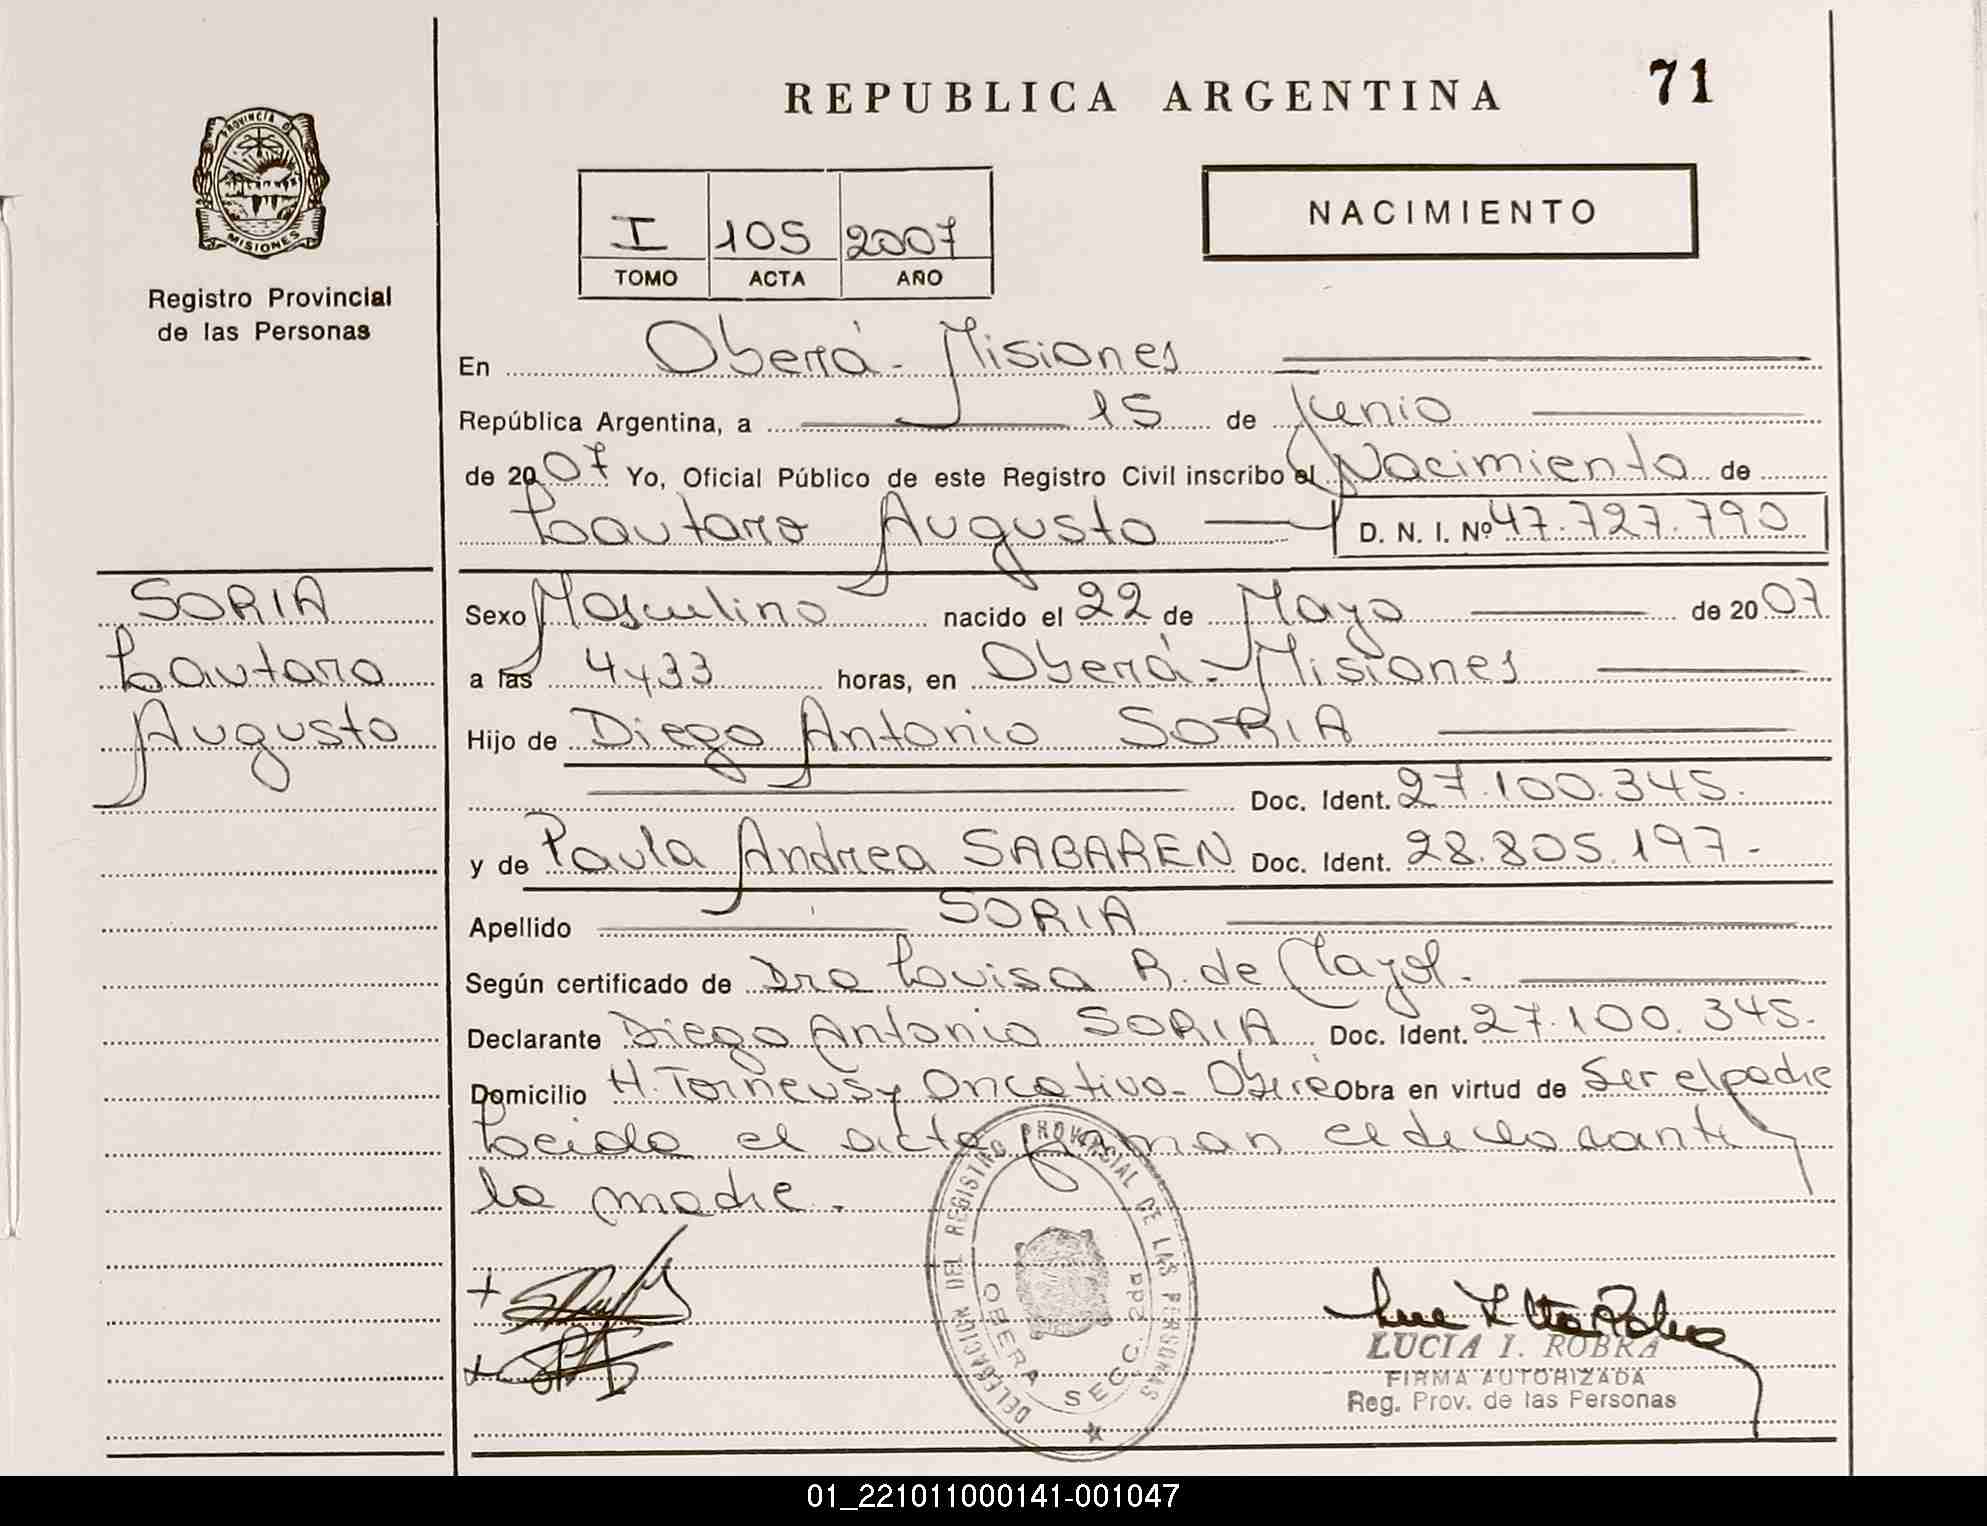 REPUBLICA ARGENTINA
71
PROVINCIA DE
MISIONES
Registro Provincial
de las Personas
I 105 2007
TOMO ACTA AÑO
NACIMIENTO
En Oberá - Misiones
República Argentina, a 15 de Junio
de 2007 Yo, Oficial Público de este Registro Civil inscribo el Nacimiento de
Lautaro Augusto D. N. I. Nº 47.727.790
SORIA
Lautaro
Augusto
Sexo Masculino nacido el 22 de Mayo de 2007
a las 4 y 33 horas, en Oberá - Misiones
Hijo de Diego Antonio SORIA
Doc. Ident. 27.100.345.
y de Paula Andrea SABAREN Doc. Ident. 28.805.197-
Apellido SORIA
Según certificado de Dra Louisa R. de Mayol.
Declarante Diego Antonio SORIA Doc. Ident. 27.100.345.
Domicilio H. Torneus y Oncativo - Oberá Obra en virtud de Ser el padre
Leida el acta firman el declarante y
la madre.
DELEGACION DEL REGISTRO PROVINCIAL DE LAS PERSONAS
OBERA SECC. 2da
LUCIA I. ROBRA
FIRMA AUTORIZADA
Reg. Prov. de las Personas
01_221011000141-001047